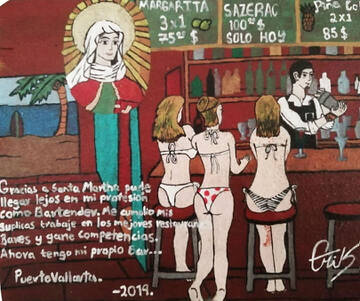 MARGARITA
3x1
75.00 $
SAZERAC
100.00 $
SOLO HOY
Piña Co
2x1
85 $
Gracias a Santa Martha pude
llegar lejos en mi profesión
como Bartender. Me cumplio mis
suplicas trabaje en los mejores restaurantes
Bares y gane Competencias.
Ahora tengo mi propio Bar...
Puerto Vallarta.
-2019.